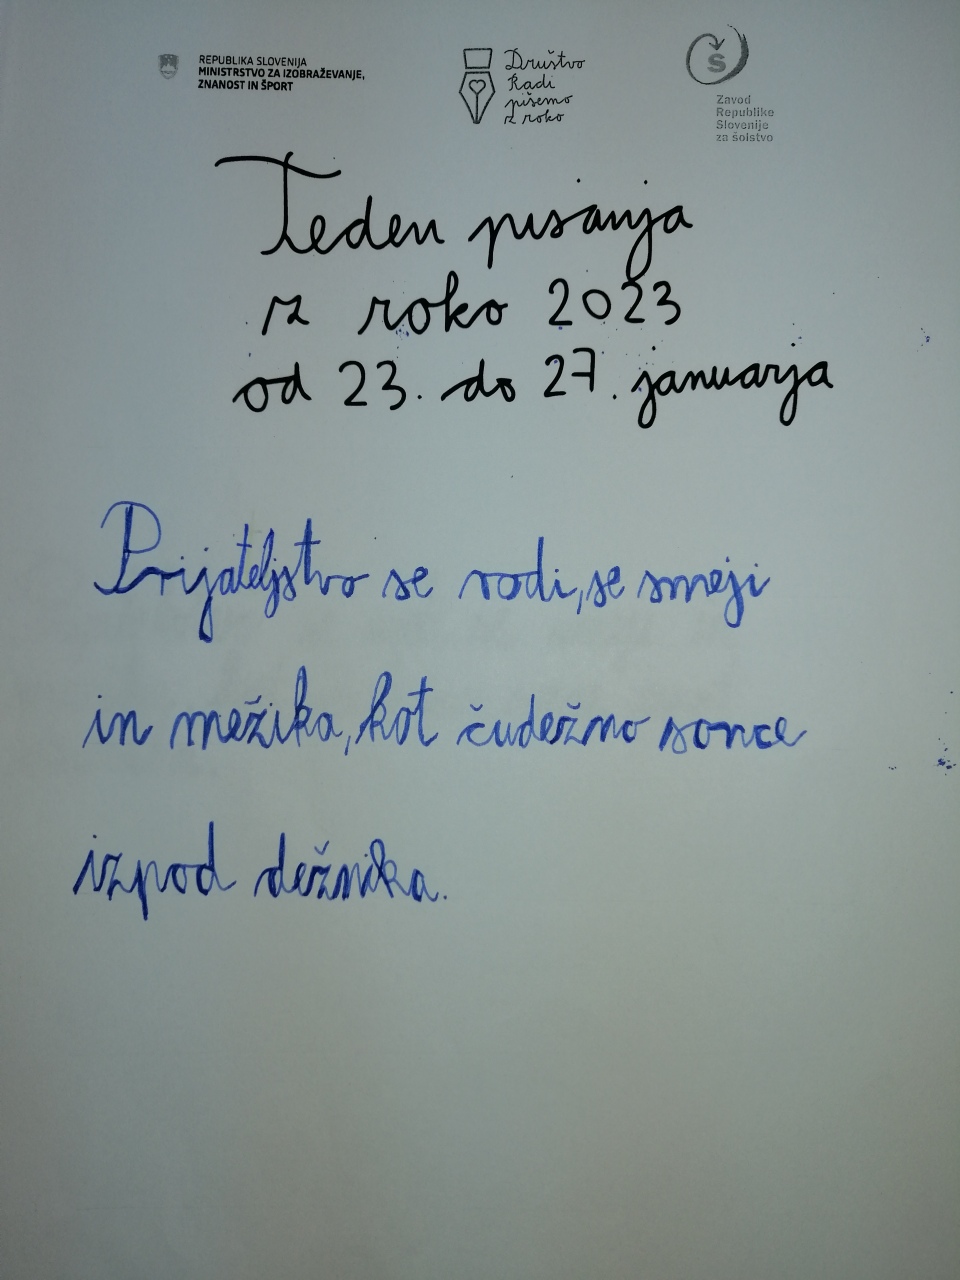 REPUBLIKA SLOVENIJA
MINISTRSTVO ZA IZOBRAŽEVANJE,
ZNANOST IN ŠPORT
Društvo
Radi
pišemo
z roko
Š
Zavod
Republike
Slovenije
za šolstvo
Teden pisanja
z roko 2023
od 23. do 27. januarja
Prijateljstvo se rodi, se smeji
in mežika, kot čudežno sonce
izpod dežnika.